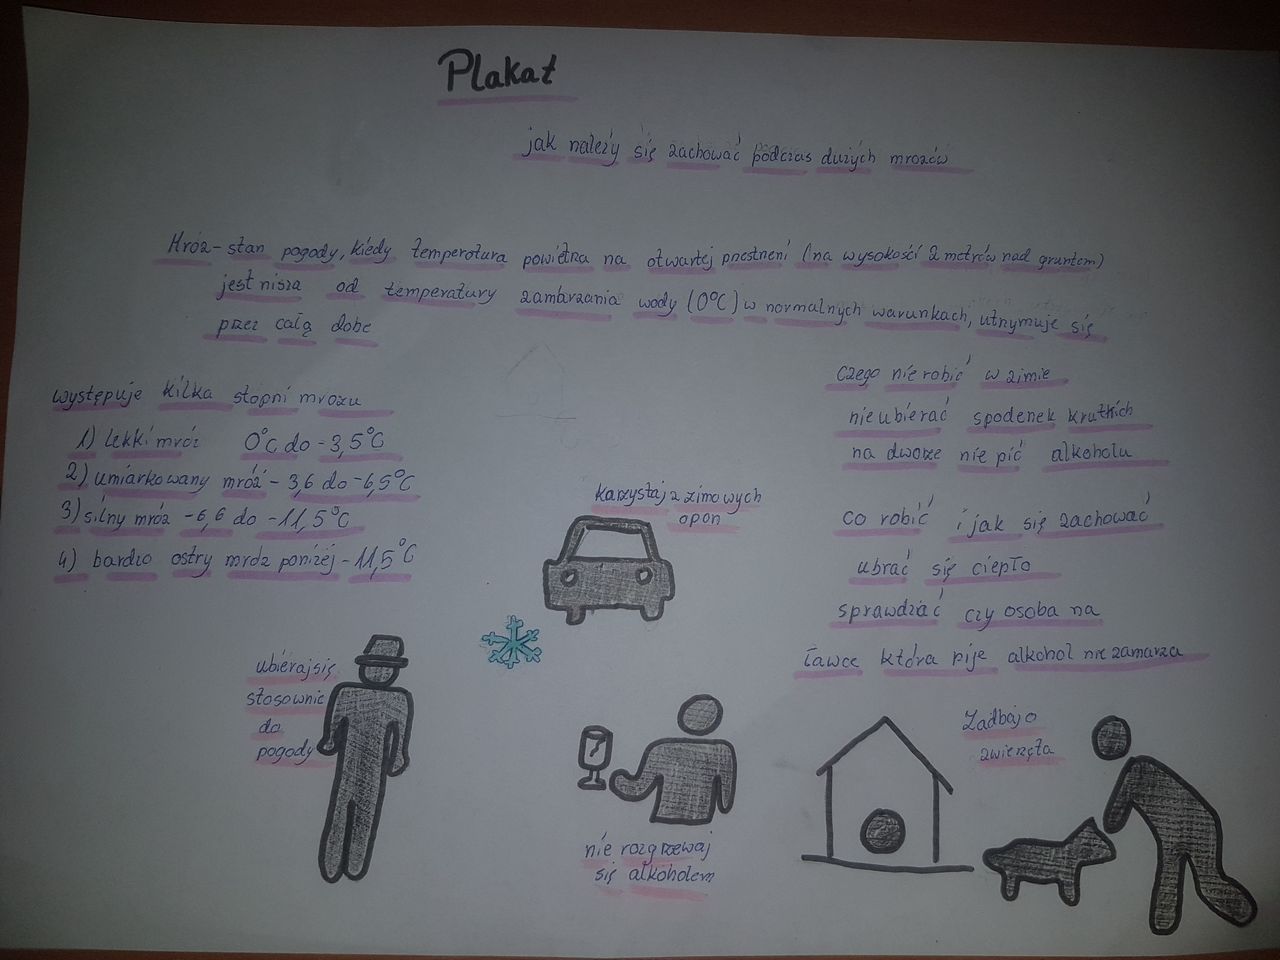 Plakat
jak należy się zachować podczas dużych mrozów
Mróz - stan pogody, kiedy temperatura powietrza na otwartej przestrzeni (na wysokości 2 metrów nad gruntem)
jest nisza od temperatury zamarzania wody (0°C) w normalnych warunkach, utrzymuje się
przez całą dobe
występuje kilka stopni mrozu
1) lekki mróz 0°C do -3,5°C
2) umiarkowany mróz - 3,6 do -6,5°C
3) silny mróz -6,6 do -11,5°C
4) bardzo ostry mróz poniżej -11,5°C
czego nie robić w zimie
nie ubierać spodenek krutkich
na dworze nie pić alkoholu
co robić i jak się zachować
ubrać się ciepło
sprawdzać czy osoba na
ławce która pije alkohol nie zamarza
karzystaj z zimowych
opon
ubieraj się
stosownie
do
pogody
nie rozgrzewaj
się alkoholem
Zadbaj o
zwierzęta